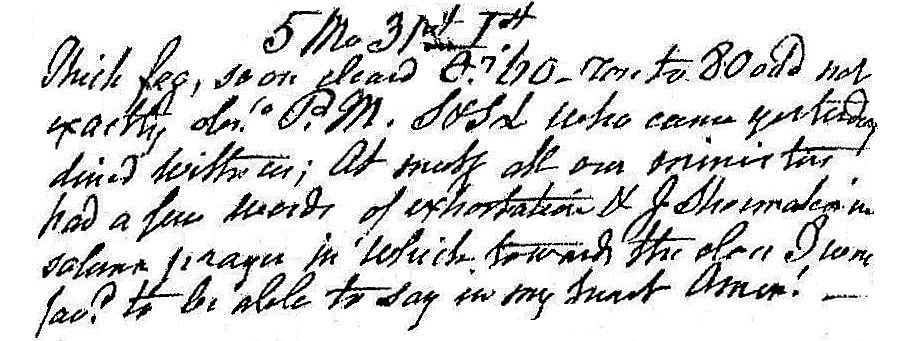 5 Mo 31st 1st
Thick fog, soon cleard 60 - rose to 80 odd not
exactly P.M. S & S L who came yesterday
dined with us; At meetg all our ministers
had a few words of exhortation & J Shoemaker in
solemn prayer in which towards the close I was
favd. to be able to say in my heart Amen! —